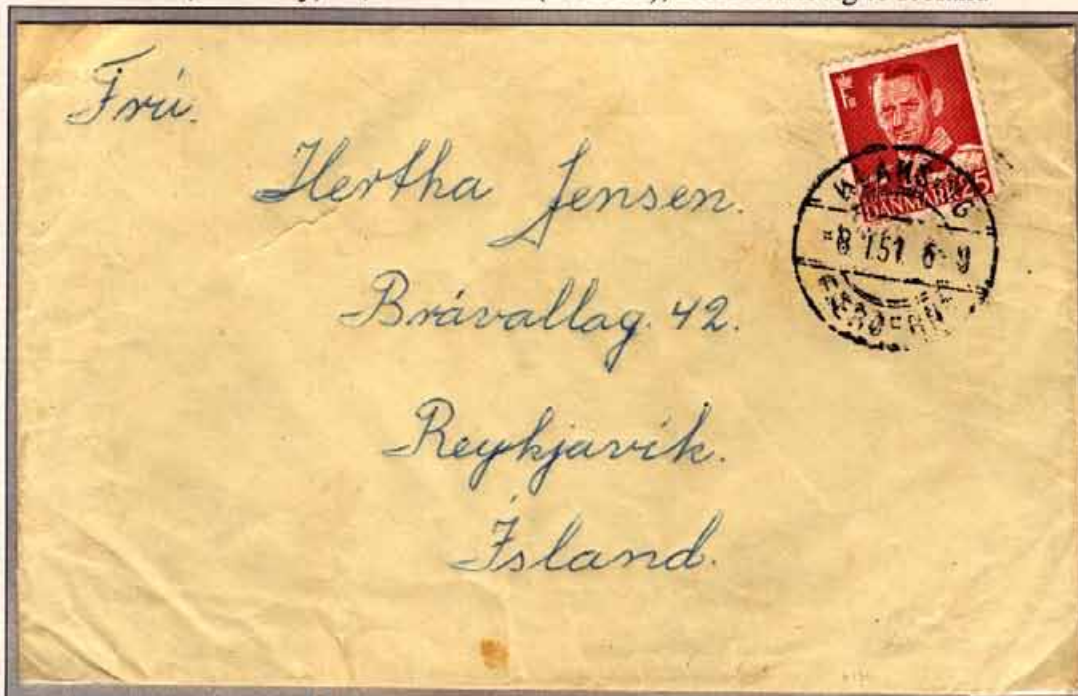 Frú.
Hertha Jensen.
Brávallag. 42.
Reykjavík.
Ísland.
DANMARK 25
KLAKSVIG
8 1.51 6-9
FÆRØERNE